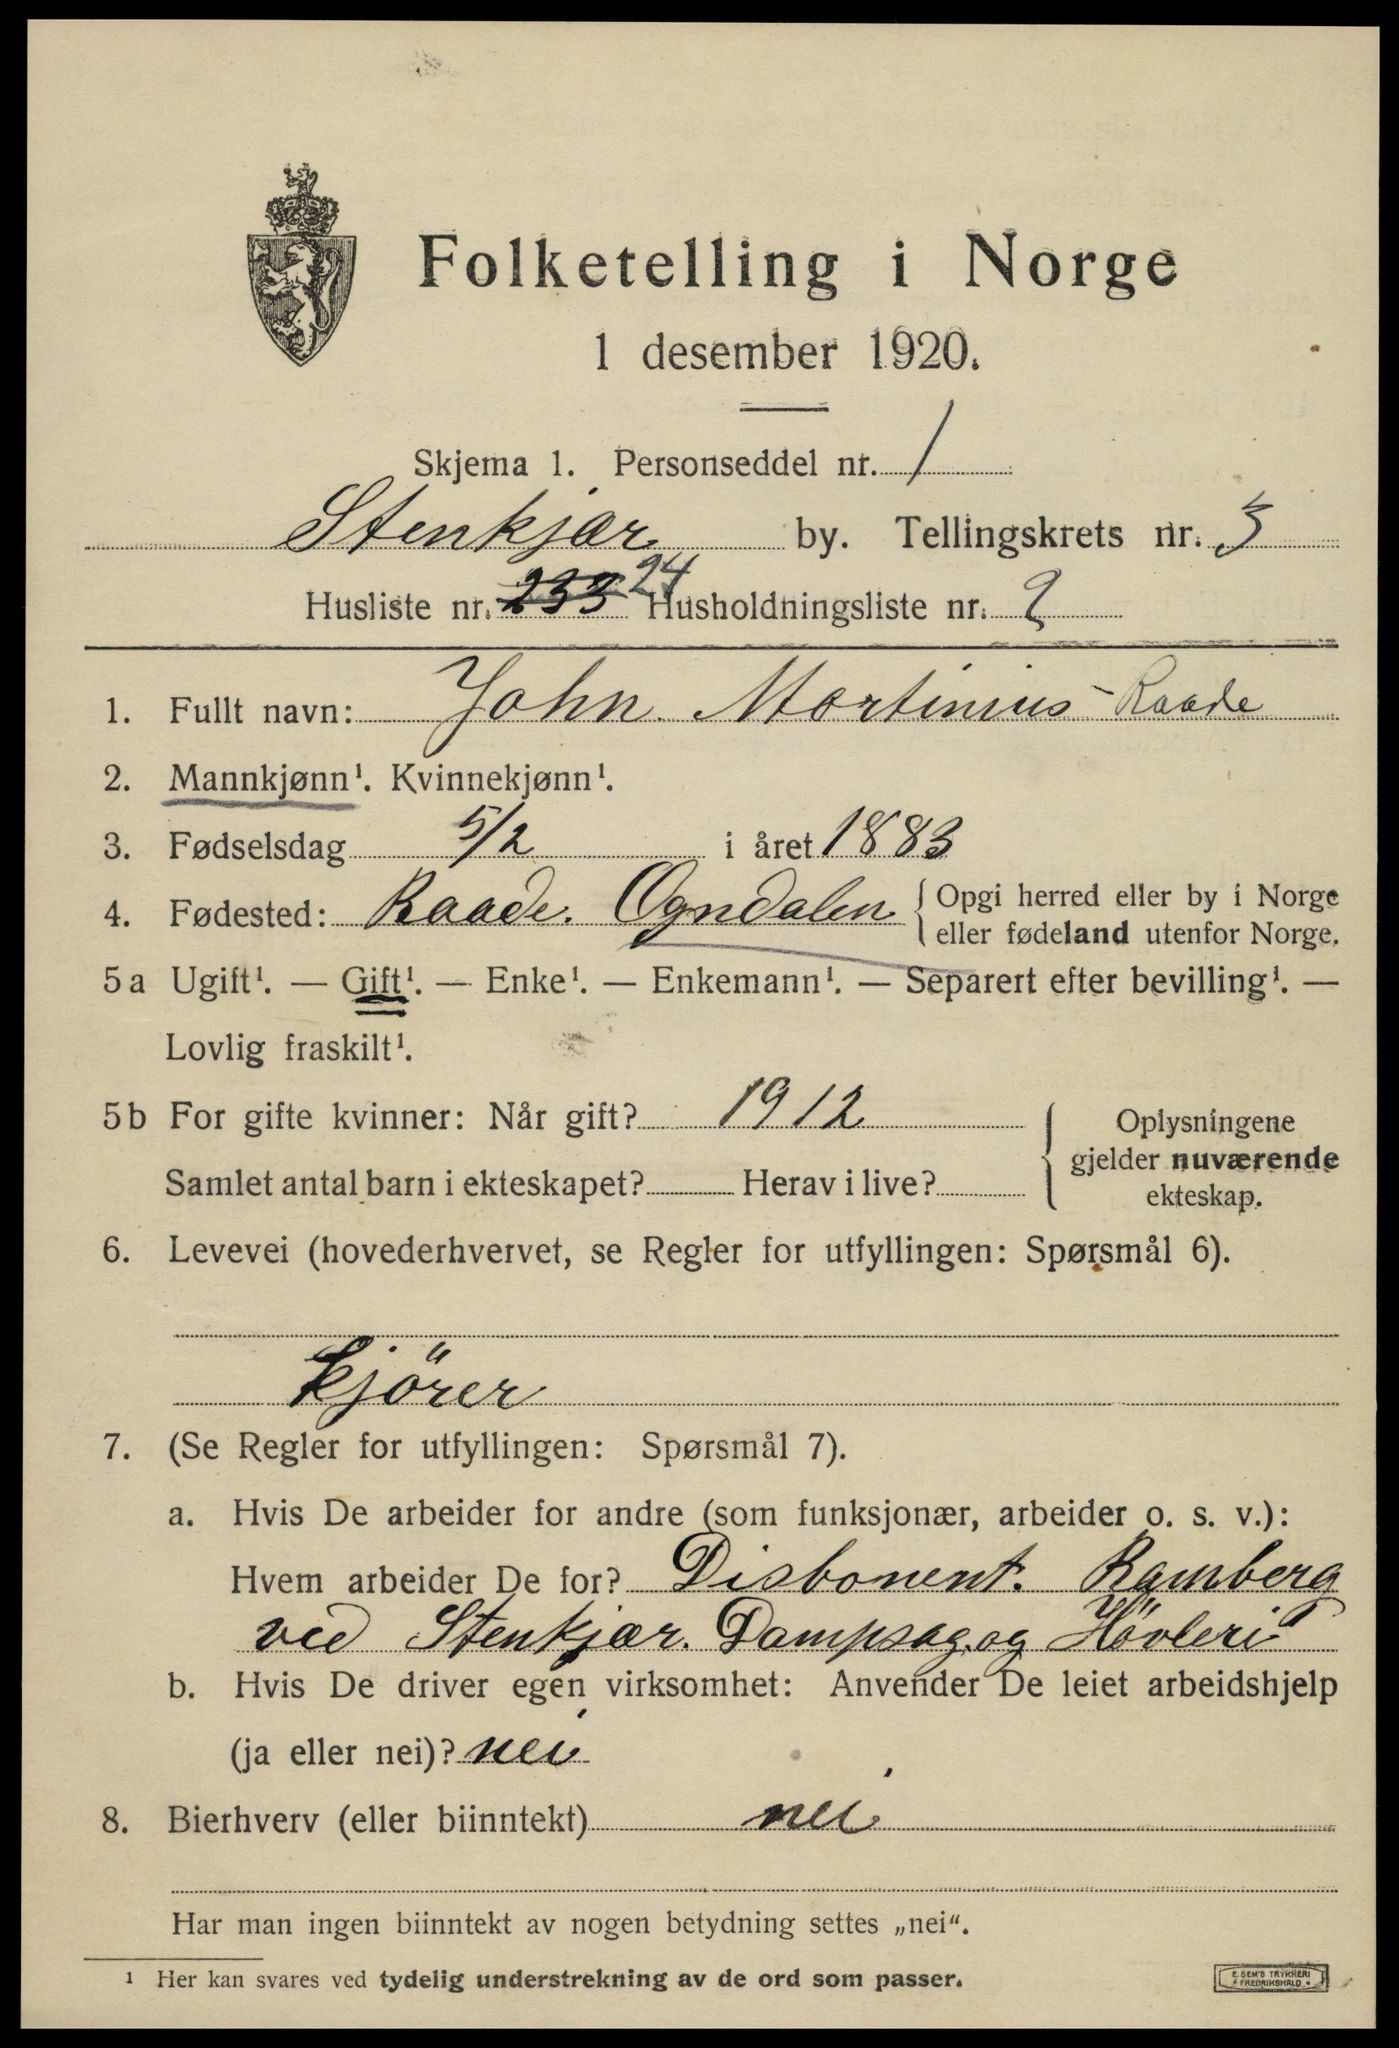 Folketelling i Norge
1 desember 1920.
Skjema 1. Personseddel nr. 1
Stenkjær by. Tellingskrets nr. 3
Husliste nr. 233 24 Husholdningsliste nr. 2
1. Fullt navn: John Martinius Raade
2. Mannkjønn¹. Kvinnekjønn¹.
3. Fødselsdag 5/2 i året 1883
4. Fødested: Raade. Ogndalen {Opgi herred eller by i Norge
eller fødeland utenfor Norge.
5a Ugift¹. — Gift¹. — Enke¹. — Enkemann¹. — Separert efter bevilling¹. —
Lovlig fraskilt¹.
5b For gifte kvinner: Når gift? 1912
Samlet antal barn i ekteskapet? Herav i live?
Oplysningene
gjelder nuværende
ekteskap.
6. Levevei (hovederhvervet, se Regler for utfyllingen: Spørsmål 6).
kjörer
7. (Se Regler for utfyllingen: Spørsmål 7).
a. Hvis De arbeider for andre (som funksjonær, arbeider o. s. v.):
Hvem arbeider De for? Disbonent. Ramberg
ved Stenkjær. Dampsag og Hövleri
b. Hvis De driver egen virksomhet: Anvender De leiet arbeidshjelp
(ja eller nei)? nei
8. Bierhverv (eller biinntekt) nei
Har man ingen biinntekt av nogen betydning settes „nei“.
¹ Her kan svares ved tydelig understrekning av de ord som passer.
E. SEM'S TRYKKERI
FREDRIKSHALD